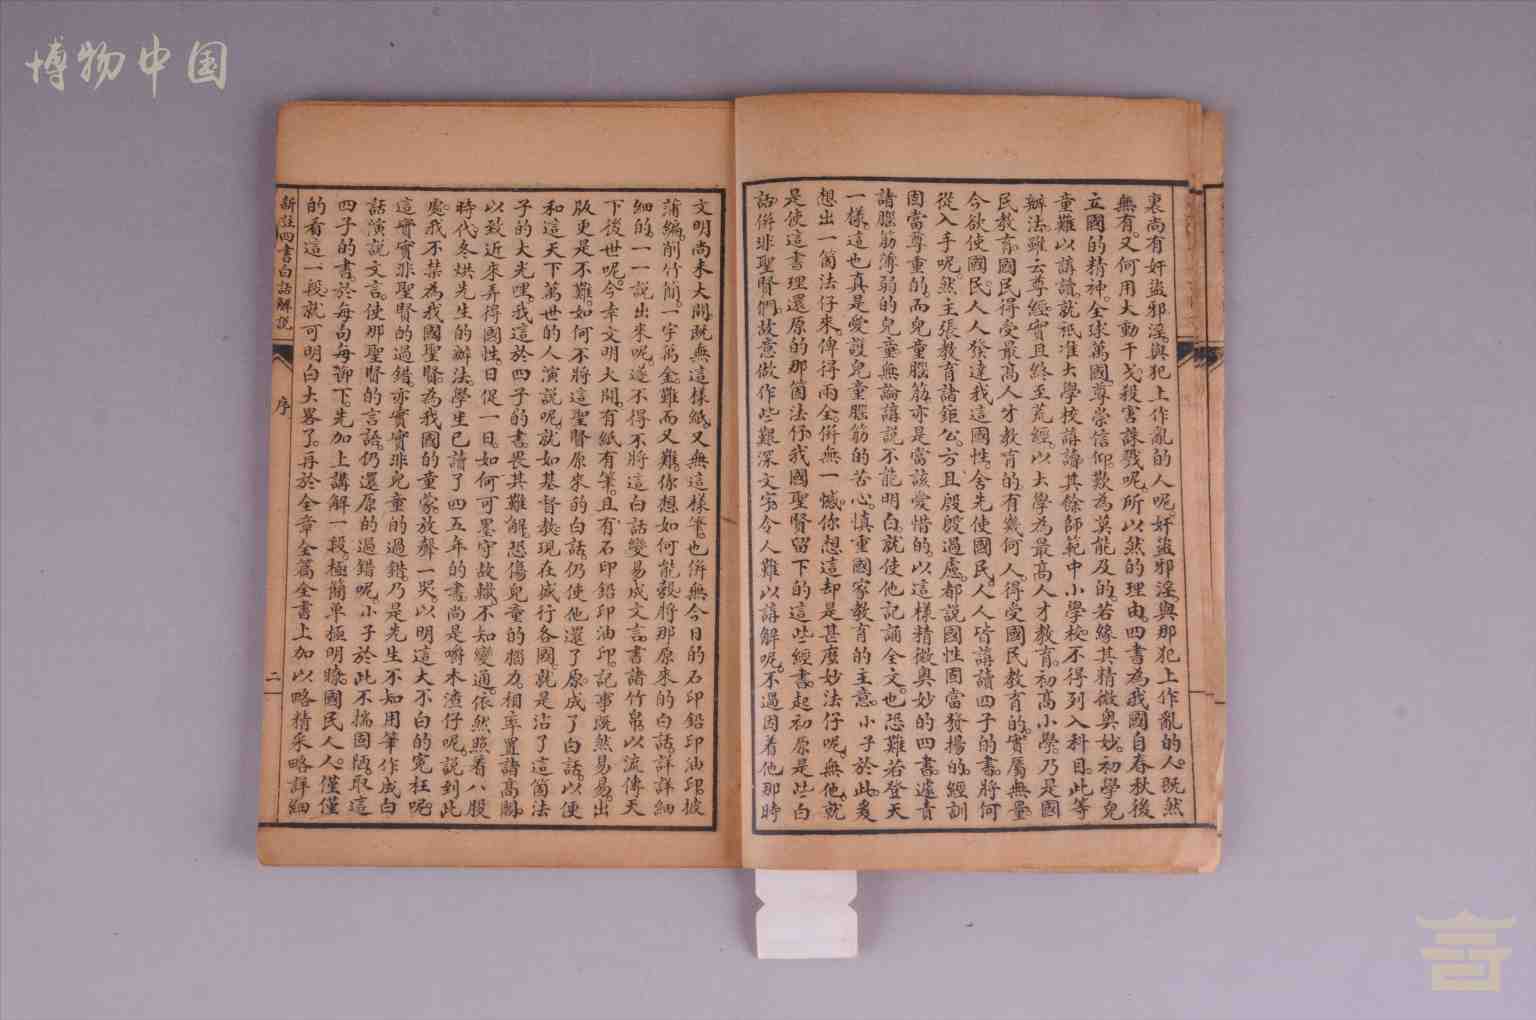 博物中国
裏尚有奸盜邪淫。與犯上作亂的人呢。奸盜邪淫。與那犯上作亂的人。既然
無有。又何用大動干戈。殺害誅戮呢。所以然的理由。四書為我國自春秋後
立國的精神。全球萬國。尊崇信仰。歎為莫能及的。若緣其精微奧妙。初學兒
童難以講讀。就祇准大學校講讀。其餘師範中小學校。不得列入科目。此等
辦法。雖云尊經。實且終至荒經。以大學為最高人才教育。初高小學。乃是國
民教育。國民得受最高人才教育的有幾何人。得受國民教育的。實屬無量。
今欲使國民人人發達我這國性。舍先使國民人人皆講讀四子的書。將何
從入手呢。然主張教育諸鉅公。方且殷殷過慮。都說國性固當發揚的。經訓
固當尊重的。而兒童腦筋亦是當該愛惜的。以這樣精微奧妙的四書。遽責
請腦筋薄弱的兒童。無論講說不能明白。就使他記誦全文。也恐難若登天
一樣。這也真是愛護兒童腦筋的苦心。慎重國家教育的主意。小子於此。爰
想出一箇法仔來。俾得兩全。併無一憾。你想這却是甚麼妙法仔呢。無他。就
是使這書理還原的那箇法仔。我國聖賢留下的這些經書。起初原是些白
話。併非聖賢們。故意做作些艱深文字。令人難以講解呢。不過因着他那時
文明尚未大開。既無這樣紙。又無這樣筆。也併無今日的石印鉛印油印。披
蒲編。削竹簡。一字萬金。難而又難。你想如何能彀將那原來的白話。詳詳細
細的。一一說出來呢。遂不得不將這白話變易成文言。書諸竹帛。以流傳天
下後世呢。今幸文明大開。有紙有筆。且有石印鉛印油印。記事既然易易。出
版更是不難。如何不將這聖賢原來的白話。仍使他還了原成了白話。以便
和這天下萬世的人演說呢。就如基督教。現在盛行各國。就是沾了這箇法
子的大光哩。我這於四子的書。畏其難解。恐傷兒童的腦力。相率置諸高閣。
以致近來弄得國性日促一日。如何可墨守故轍。不知變通。依然照着八股
時代。冬烘先生的辦法。學生已讀了四五年的書。尚是嚼木渣仔呢。說到此
處。我不禁為我國聖賢。為我國的童蒙。放聲一哭。以明這大不白的冤枉呢。
這實實非聖賢的過錯。亦實實非兒童的過錯。乃是先生不知用筆作成白
話。演說文言。使那聖賢的言語。仍還原的過錯呢。小子於此不揣固陋。取這
四子的書。於每句每節下。先加上講解一段。極簡單極明瞭。國民人人。僅僅
的看這一段。就可明白大畧了。再於全章全篇全書上。加以略精采略詳細
新註四書白話解說
序
二